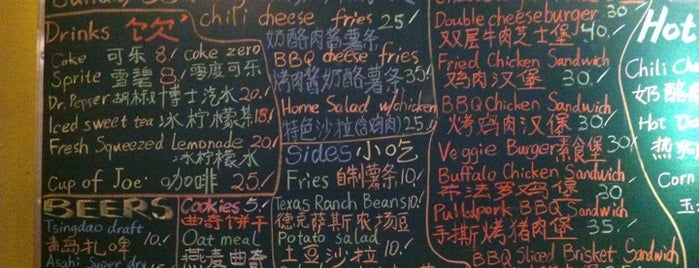 Drinks 饮
Coke 可乐 8/ coke zero
Sprite 雪碧 8/ 零度可乐
Dr. Pepper 胡椒博士汽水 20/
Iced sweet tea 冰柠檬茶 18/
Fresh Squeezed Lemonade 20/
冰柠檬水
Cup of Joe 咖啡 25/
BEERS
Tsingdao draft
青岛扎啤 10/
Asahi Super dry
Cookies 5/
曲奇饼干
Oat meal
燕麦曲奇
chili cheese fries 25/
奶酪肉酱薯条
BBQ cheese fries
烤肉酱奶酪薯条 35/
Home Salad w/chicken
特色沙拉(含鸡肉) 25/
Sides 小吃
Fries 自制薯条 10/
Texas Ranch Beans 10/
德克萨斯农场豆
Potato salad
土豆沙拉 10/
Double cheeseburger 30
双层牛肉芝士堡 40/
Fried Chicken Sandwich
鸡肉汉堡 30/
BBQ Chicken Sandwich
烤鸡肉汉堡 30/
Veggie Burger 素食堡 30/
Buffalo Chicken Sandwich
布法罗鸡堡 30
Pulledpork BBQ Sandwich
手撕烤猪肉堡 35/
BBQ Sliced Brisket Sandwich
Hot
Chili
奶酪
Hot
热
Corn
玉